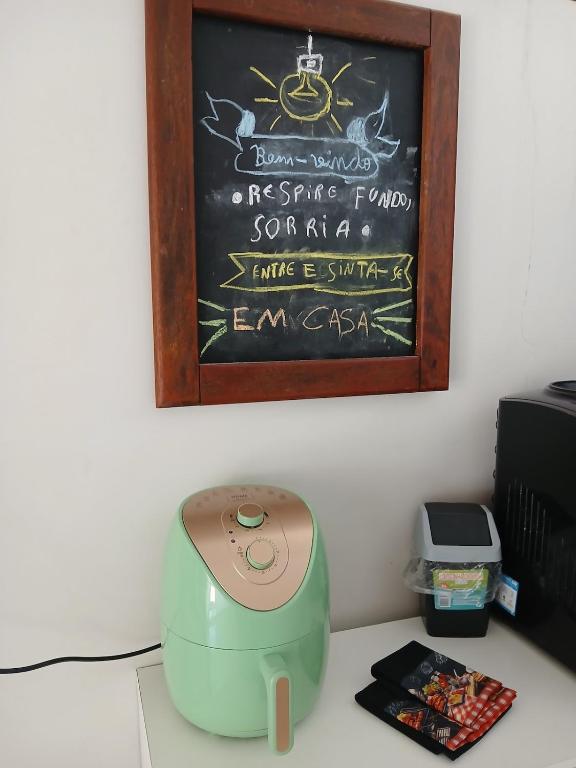 Bem-vindo
• RESPIRE FUNDO,
SORRIA •
ENTRE E SINTA-SE
EM CASA